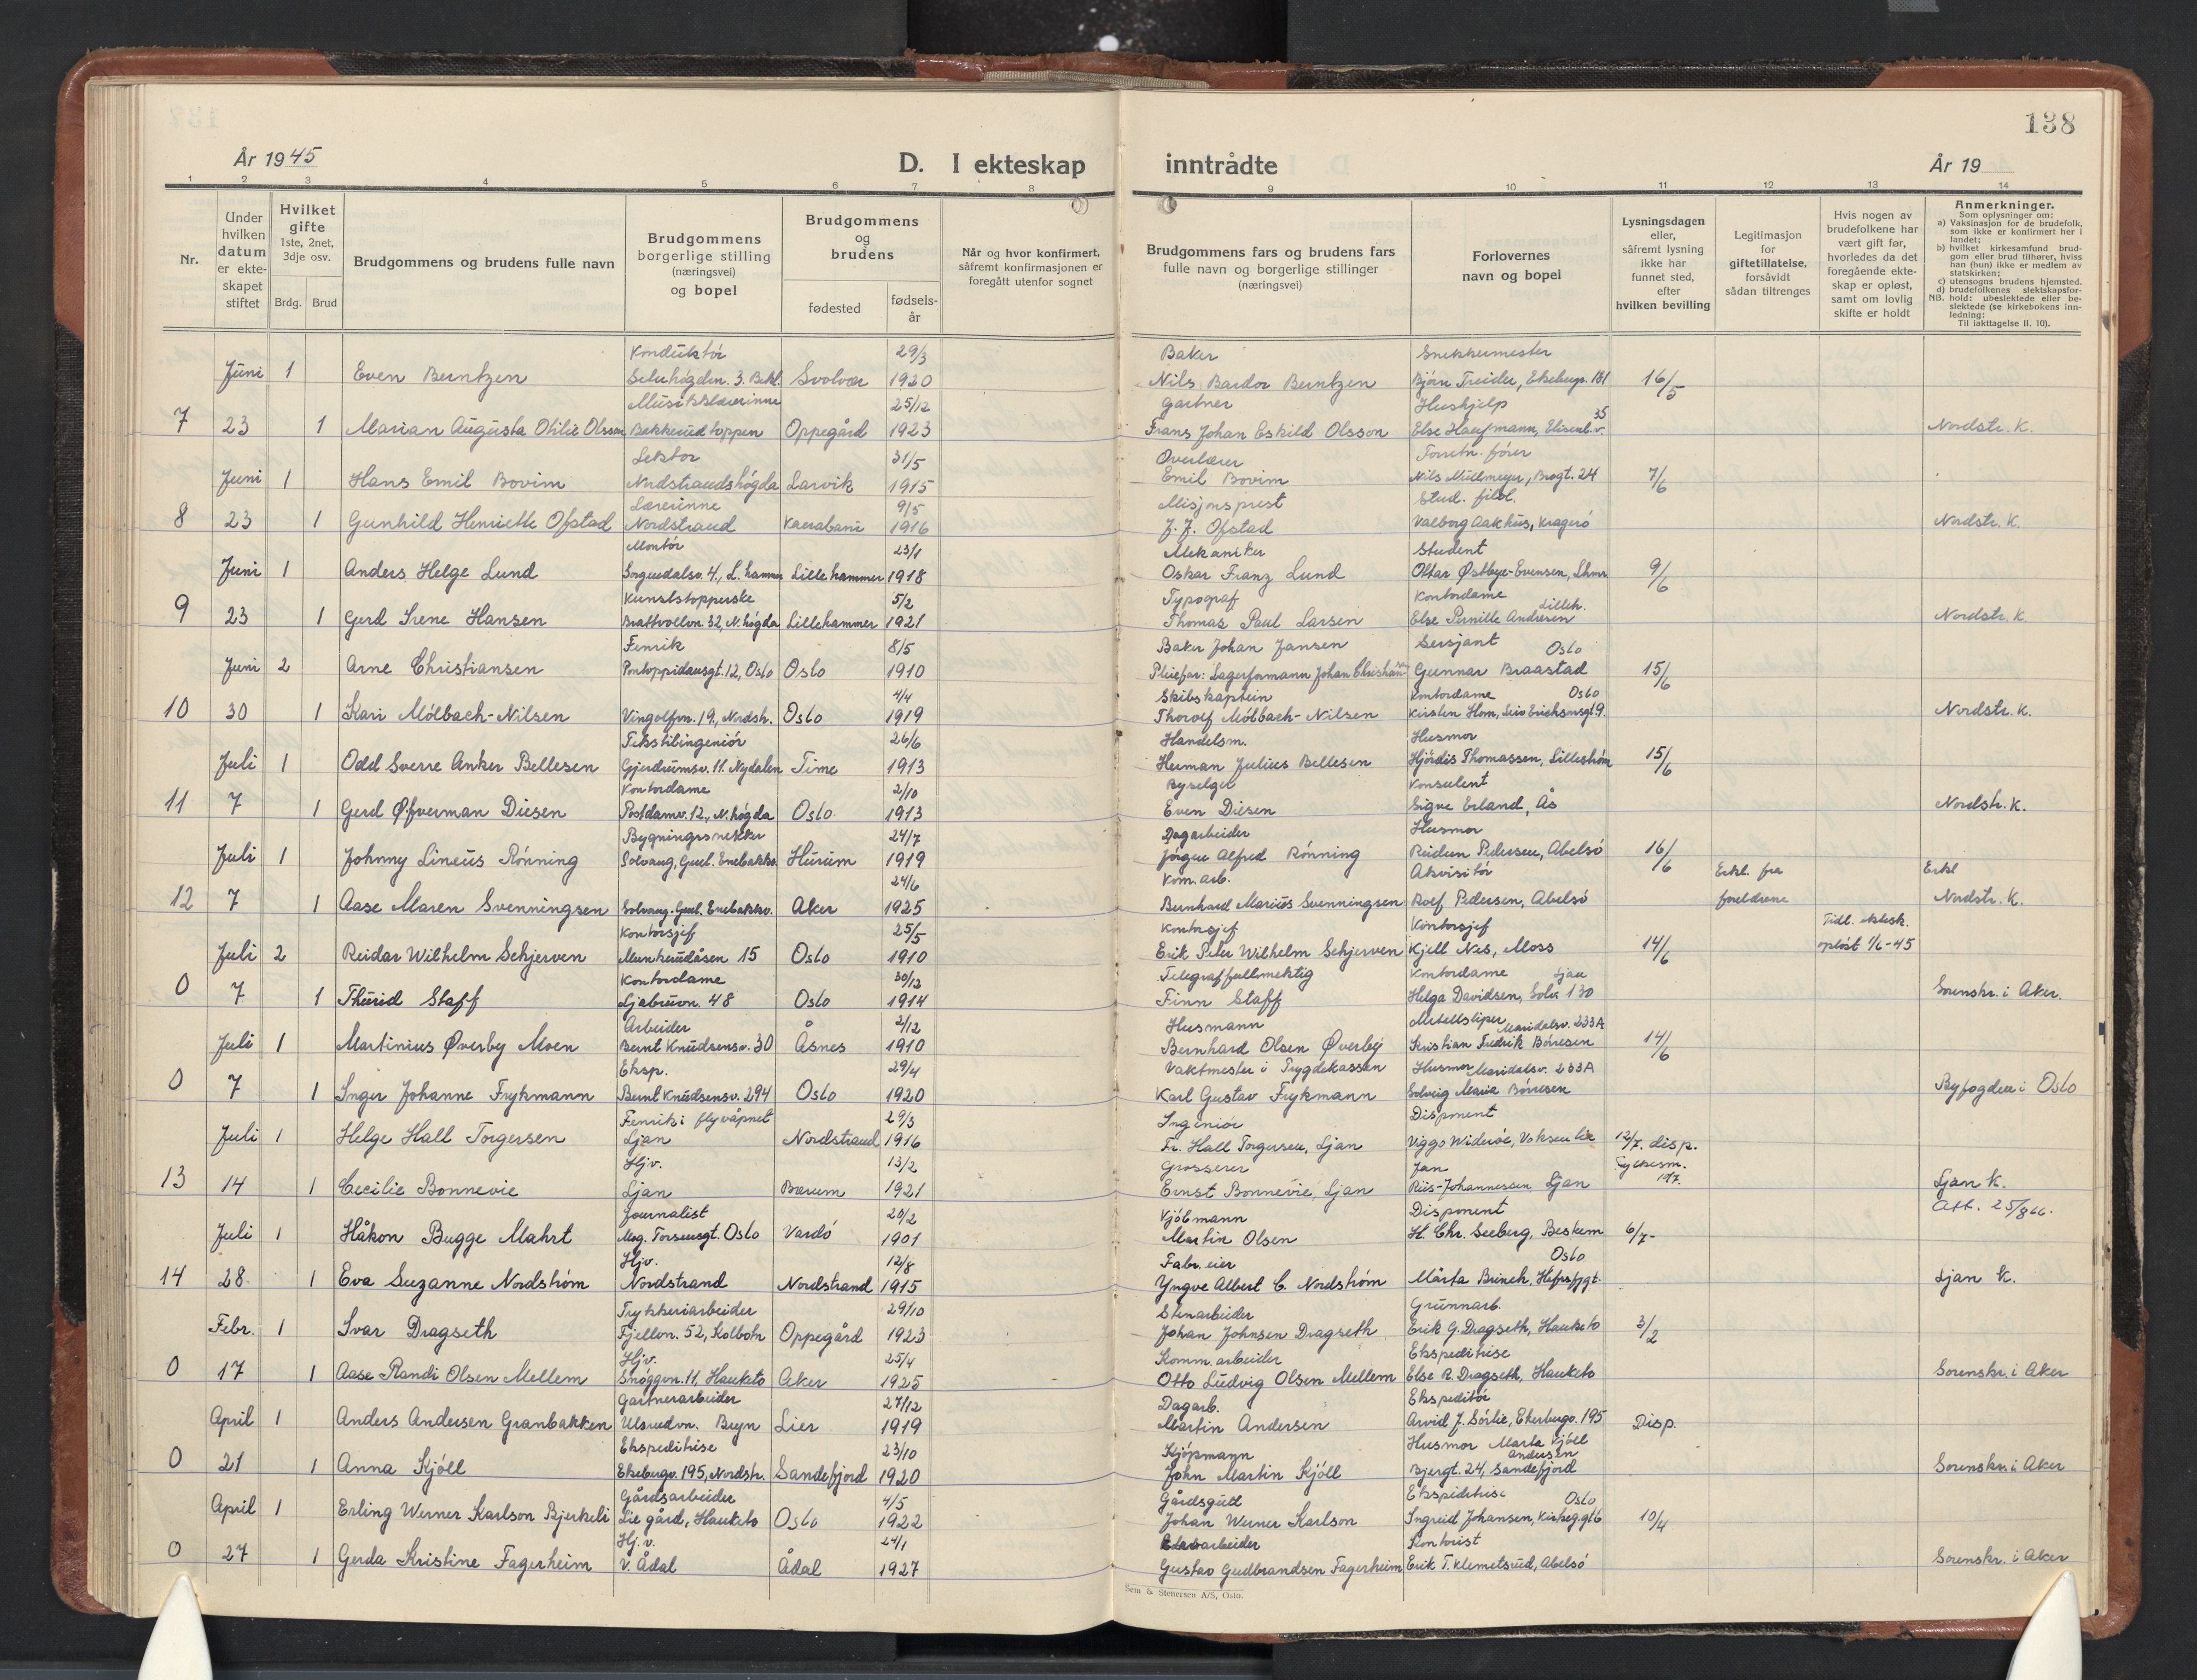 138
År 1945
D. I ekteskap inntrådte
År 19
1 2 3 4 5 6 7 8 9 10 11 12 13 14
Nr.
Under hvilken datum er ekteskapet stiftet
Hvilket gifte 1ste, 2net, 3dje osv.
Brdg. Brud
Brudgommens og brudens fulle navn
Brudgommens borgerlige stilling (næringsvei) og bopel
Brudgommens og brudens
fødested
fødselsår
Når og hvor konfirmert, såfremt konfirmasjonen er foregått utenfor sognet
Brudgommens fars og brudens fars fulle navn og borgerlige stillinger (næringsvei)
Forlovernes navn og bopel
Lysningsdagen eller, såfremt lysning ikke har funnet sted, efter hvilken bevilling
Legitimasjon for giftetillatelse, forsåvidt sådan tiltrenges
Hvis nogen av brudefolkene har vært gift før, hvorledes da det foregående ekteskap er opløst, samt om lovlig skifte er holdt
Anmerkninger.
Som oplysninger om:
a) Vaksinasjon for de brudefolk, som ikke er konfirmert her i landet;
b) hvilket kirkesamfund brudgom eller brud tilhører, hviss han (hun) ikke er medlem av statskirken;
c) utensogns brudens hjemsted.
d) brudefolkenes slektskapsforhold: ubeslektede eller beslektede (se kirkebokens innledning:
NB. Til iakttagelse II. 10).
Konduktør 29/3 Baker Snekkermester
Juni 1 Even Berntzen Solvær 1920 Nils Bardor Berntzen Bjørn Treider, Ekebergv. 181 16/5
Musikklærerinne 25/12 Gartner Hushjelp 35
7 23 1 Marian Augusta Otilie Olsson Bekkerudtoppen Oppegård 1923 Frans Johan Eskild Olsson Nordstr. K.
Lektor 31/5 Overlærer Forretn. fører
Juni 1 Hans Emil Bovim Nordstrandshøgda Larvik 1915 Emil Bovim 7/6
Lærerinne 9/5 Misjonsprest Stud. filol.
8 23 1 Gunhild Henriette Ofstad Nordstrand 1916 J. J. Ofstad Valborg Aakhus, Kragerø Nordstr. K.
Montør 23/1 Mekaniker Student
Juni 1 Anders Helge Lund Sorgendalsv. 4., L.hammer Lillehammer 1918 Oskar Franz Lund Ottar Østbye-Evensen, Lhmr 9/6
Kunststopperske 5/2 Typograf Kontordame Lilleh.
9 23 1 Gerd Irene Hansen Brattvollvn. 32, N.høgda Lillehammer 1921 Thomas Paul Larsen Else Pernille Andresen Nordstr. K
Fenrik 8/5 Baker Johan Jansen Sersjant Oslo
Juni 2 Arne Christiansen Pontoppidansgt. 12, Oslo Oslo 1910 Pleiefar: Lagerformann Johan Christiansen Gunnar Braastad 15/6
4/4 Skibskaptein Kontordame Oslo
10 30 1 Kari Mölbach-Nilsen Vingolfvn. 19., Nordstr. Oslo 1919 Thorolf Mölbach-Nilsen Kirsten Hom, Leiv Eirikssonsgt 9. Nordstr. K.
Tekstilingeniør 26/6 Handelsm. Husmor
Juli 1 Odd Sverre Anker Bellesen Gjerdrumsv. 11. Nydalen Time 1913 Herman Julius Bellesen Hjördis Thomassen, Lillestrøm 15/6
Kontordame 2/10 Byselger Konsulent
11 7 1 Gerd Øfverman Diesen Postdamv. 12., N.høgda Oslo 1913 Even Diesen Sigve Erland, Ås Nordstr. K.
Bygningssnekker 24/7 Dagarbeider Husmor
Juli 1 Johnny Lineus Rönning Solvang, Gml. Enebakkv. Hurum 1919 Jörgen Alfred Rönning Reidun Pedersen, Abelsø 16/6
24/6 Kom. arb. Akvisitör Erkl. fra Erkl
12 7 1 Aase Maren Svenningsen Solvang. Gml. Enebakkv. Aker 1925 Bernhard Marius Svenningsen Rolf Pedersen, Abelsø foreldrene Nordstr. K.
Kontorsjef 25/5 Kontorsjef Kontorsjef Tidl. ektesk.
Juli 2 Reidar Wilhelm Schjerven Munkerudåsen 15 Oslo 1910 Erik Peter Wilhelm Schjerven Kjell Nes, Moss 14/6 opløst 1/6-45
Kontordame 30/12 Telegraffullmektig Kontordame Ljan
0 7 1 Thurid Staff Ljabruvn. 48 Oslo 1914 Finn Staff Helga Davidsen, Solv. 130 Sorenskr. i Aker.
Arbeider 2/12 Husmann Metallsliper Maridalsv. 233A
Juli 1 Martinius Øverby Moen Bernt Knudsensv. 30 Åsnes 1910 Bernhard Olsen Øverby Kristian Fredrik Börresen 14/6
Eksp. 29/4 Vaktmester i Trygdekassen Husmor Maridalsv. 233A
0 7 1 Inger Johanne Frykmann Bernt Knudsensv. 294 Oslo 1920 Karl Gustav Frykmann Solveig Maria Börresen Byfogden i Oslo
Fenrik i flyvåpnet 29/3 Ingeniör Disponent
Juli 1 Helge Hall Torgersen Ljan Nordstrand 1916 Fr. Hall Torgersen, Ljan Viggo Widerøe, Voksenlia 12/7. disp.
Hjv. 13/2 Grosserer Jan Fylkesm.
13 14 1 Cecilie Bonnevie Ljan Bærum 1921 Ernst Bonnevie, Ljan Riis-Johannessen Ljan Ljan K.
Journalist 20/2 Kjöbmann Disponent Att. 25/8 66.
Juli 1 Håkon Bugge Mahrt Mog. Torsensgt. Oslo Vardö 1901 Martin Olsen H. Chr. Seeberg, Bestum 6/7-
Hjv. 12/8 Fabr. eier Oslo
14 28. 1 Eva Suzanne Nordström Nordstrand Nordstrand 1915 Yngve Albert C. Nordström Märta Brinch, Ljan K.
Trykkeriarbeider 29/10 Stenarbeider Grunnarb.
Febr. 1 Ivar Dragseth Fjellvn. 52, Kolbotn Oppegård 1923 Johan Johnsen Dragseth Erik G. Dragseth, Hauketo 3/2
Hjv. 25/4 Komm. arbeider Ekspeditrise
0 17 1 Aase Randi Olsen Mellem Snøggvn. 11, Hauketo Aker 1925 Otto Ludvig Olsen Mellem Else R. Dragseth, Hauketo Sorenskr. i Aker
Gartnerarbeider 27/12 Dagarb. Ekspeditör
April 1 Anders Andersen Granbakken Ulsrudvn. Bryn Lier 1919 Martin Andersen Arvid J. Sörlie, Ekebergv. 195 Disp.
Ekspeditrise 23/10 Kjöpmann Husmor Marta Kjöll Andersen
0 21 1 Anna Kjöll Ekebergv. 195, Nordstr. Sandefjord 1920 John Martin Kjöll Bjergt. 24, Sandefjord Sorenskr. i Aker
Gårdsarbeider 4/5 Gårdsgutt Ekspeditrise Oslo
April 1 Erling Werner Karlson Bjerkeli Lie gård, Hauketo Oslo 1922 Johan Werner Karlson Ingreid Johansen, Kirkeg.gt 6 10/4
Hj. v. 24/1 Kontorist
0 27 1 Gerda Kristine Fagerheim V. Ådal Ådal 1927 Gustav Gudbrandsen Fagerheim Erik T. Klemetsrud, Abelsø Sorenskr. i Aker
Sem & Stenersen A/S, Oslo.